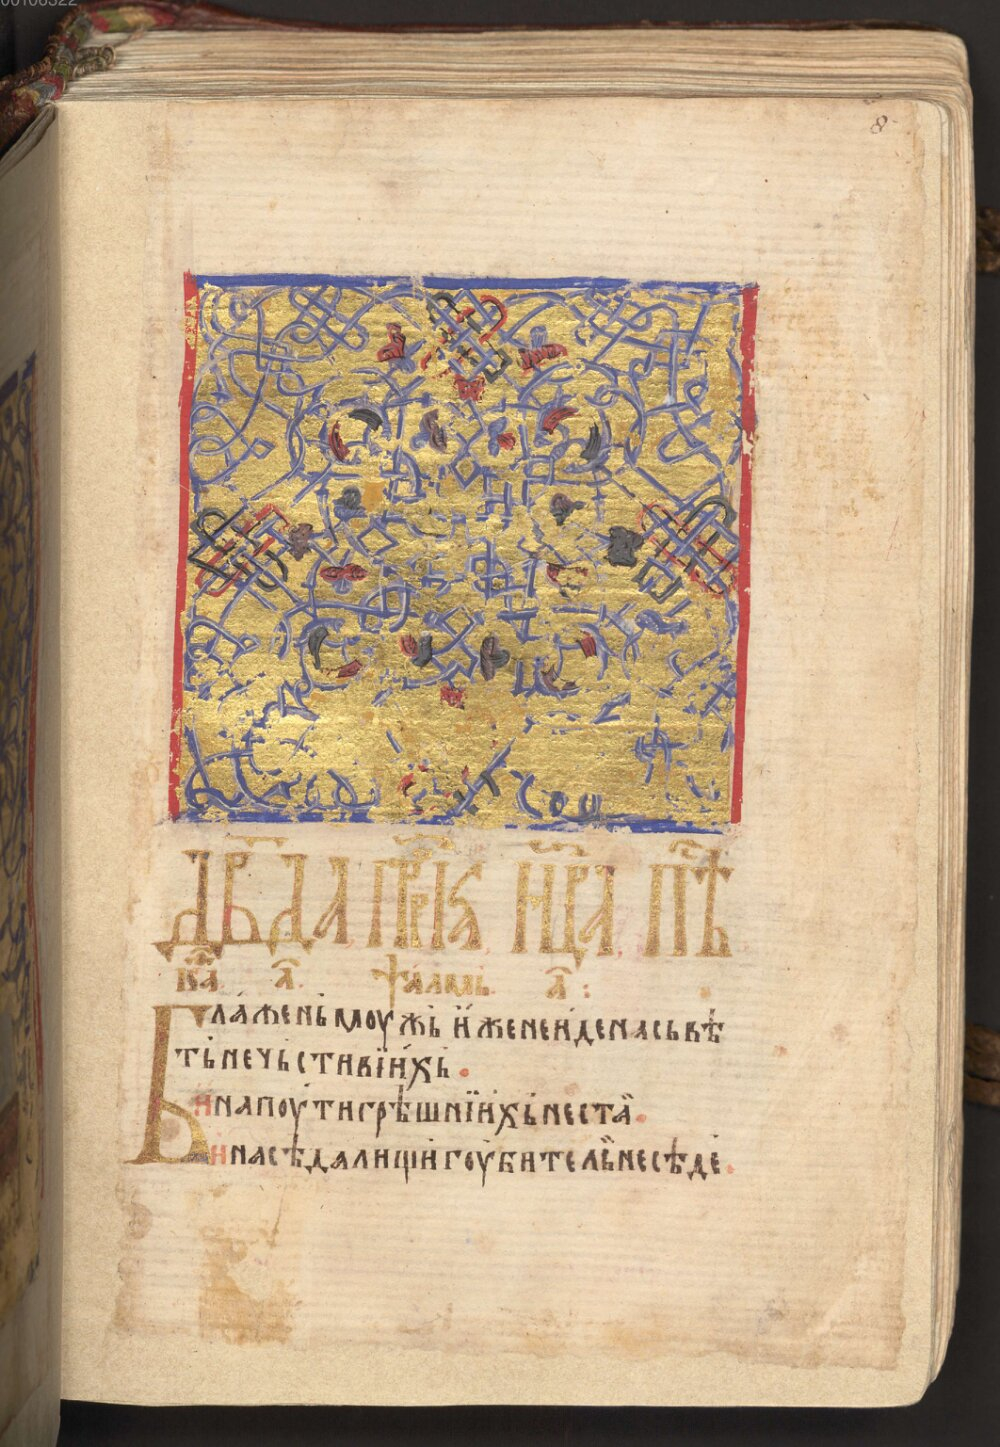 00106322
8
Дв҃да пр҃ркⷶ и҃ цр҃ꙗ пѣ
кⷭ҇а а҃. ѱалмь. а҃ :
Бла́жень моу́жь и́же не и́де на сьвѣ
ть нечьстиві́ихь.
И на поу́ти грѣшни́ихь не ста̏.
И на сѣдалищи гоу́бителѥ̏ не сѣде́.